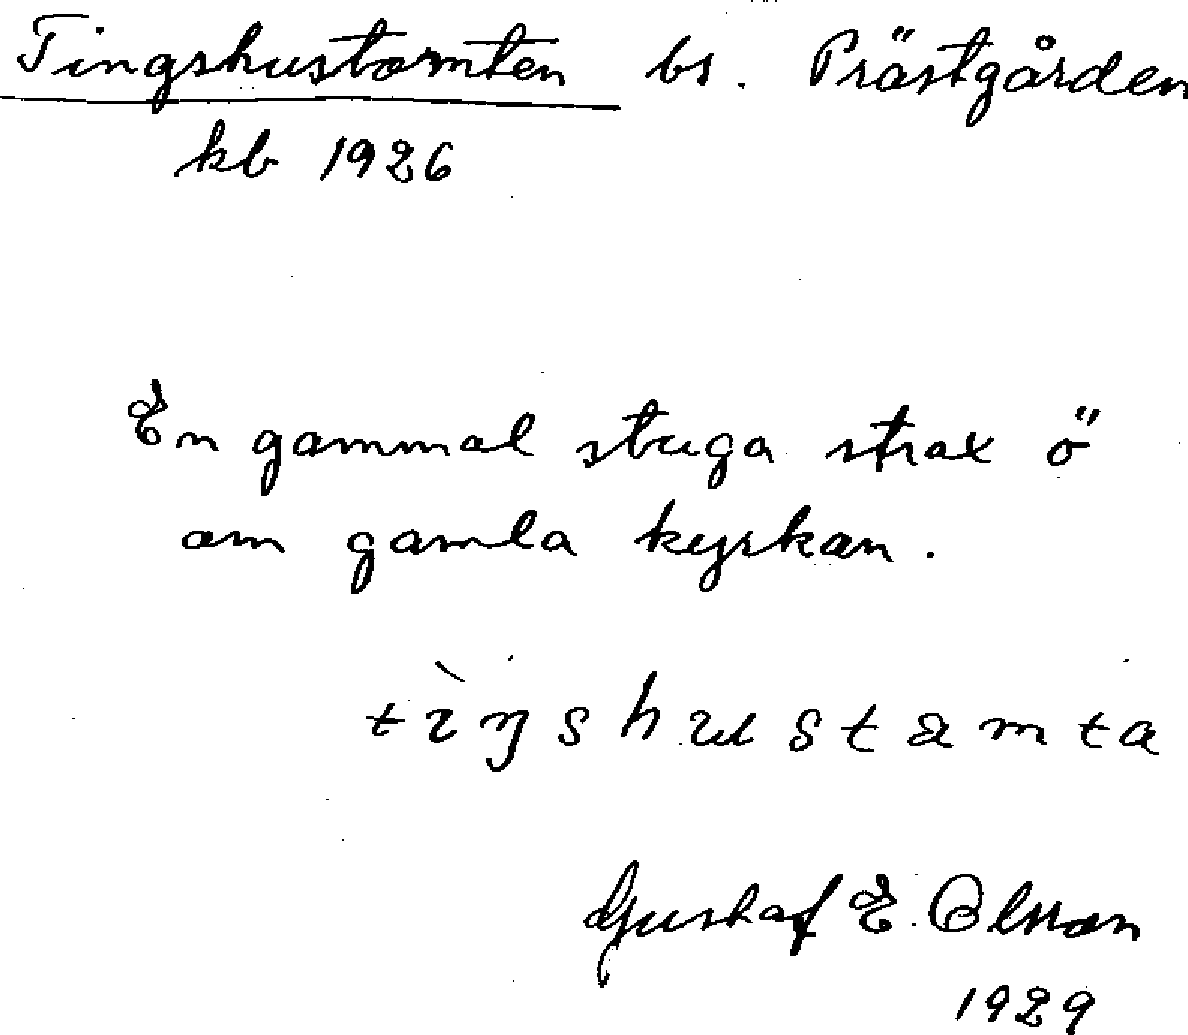 Tingshustomten bs. Prästgården
kb 1926
En gammal stuga strax ö
om gamla kyrkan.
tìŋshustamta
Gustaf E. Olsson
1929